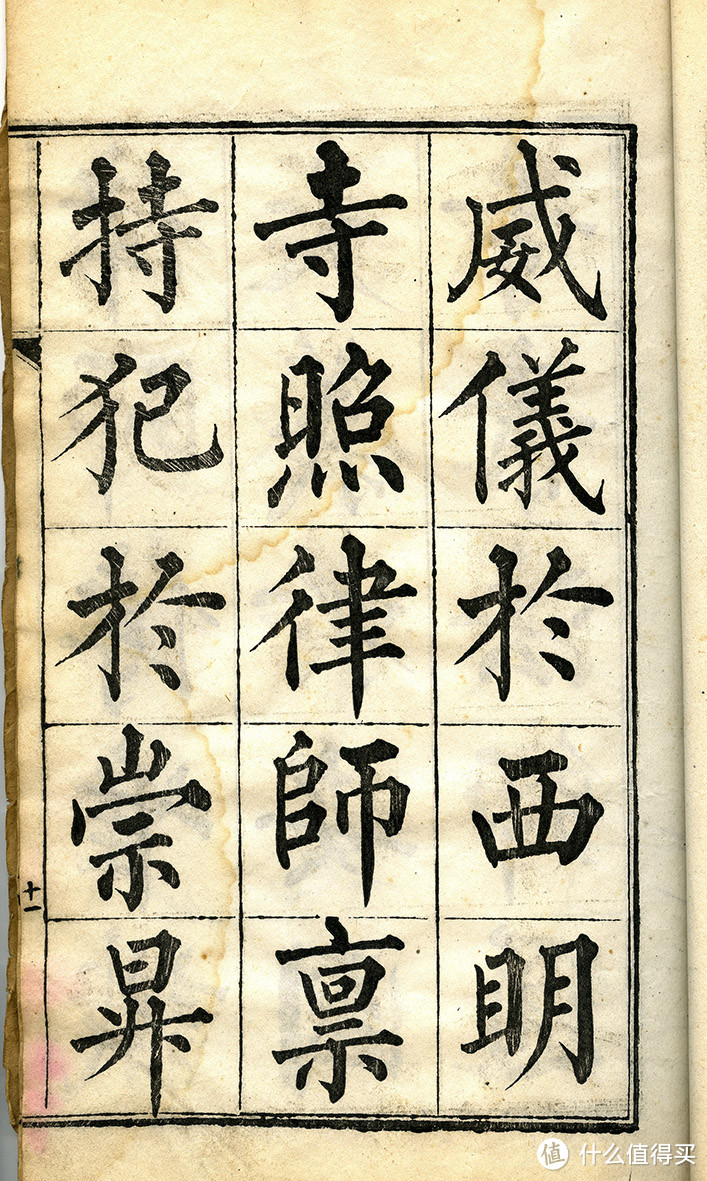 威儀於西明
寺照律師禀
持犯於崇昇
十一
值 什么值得买